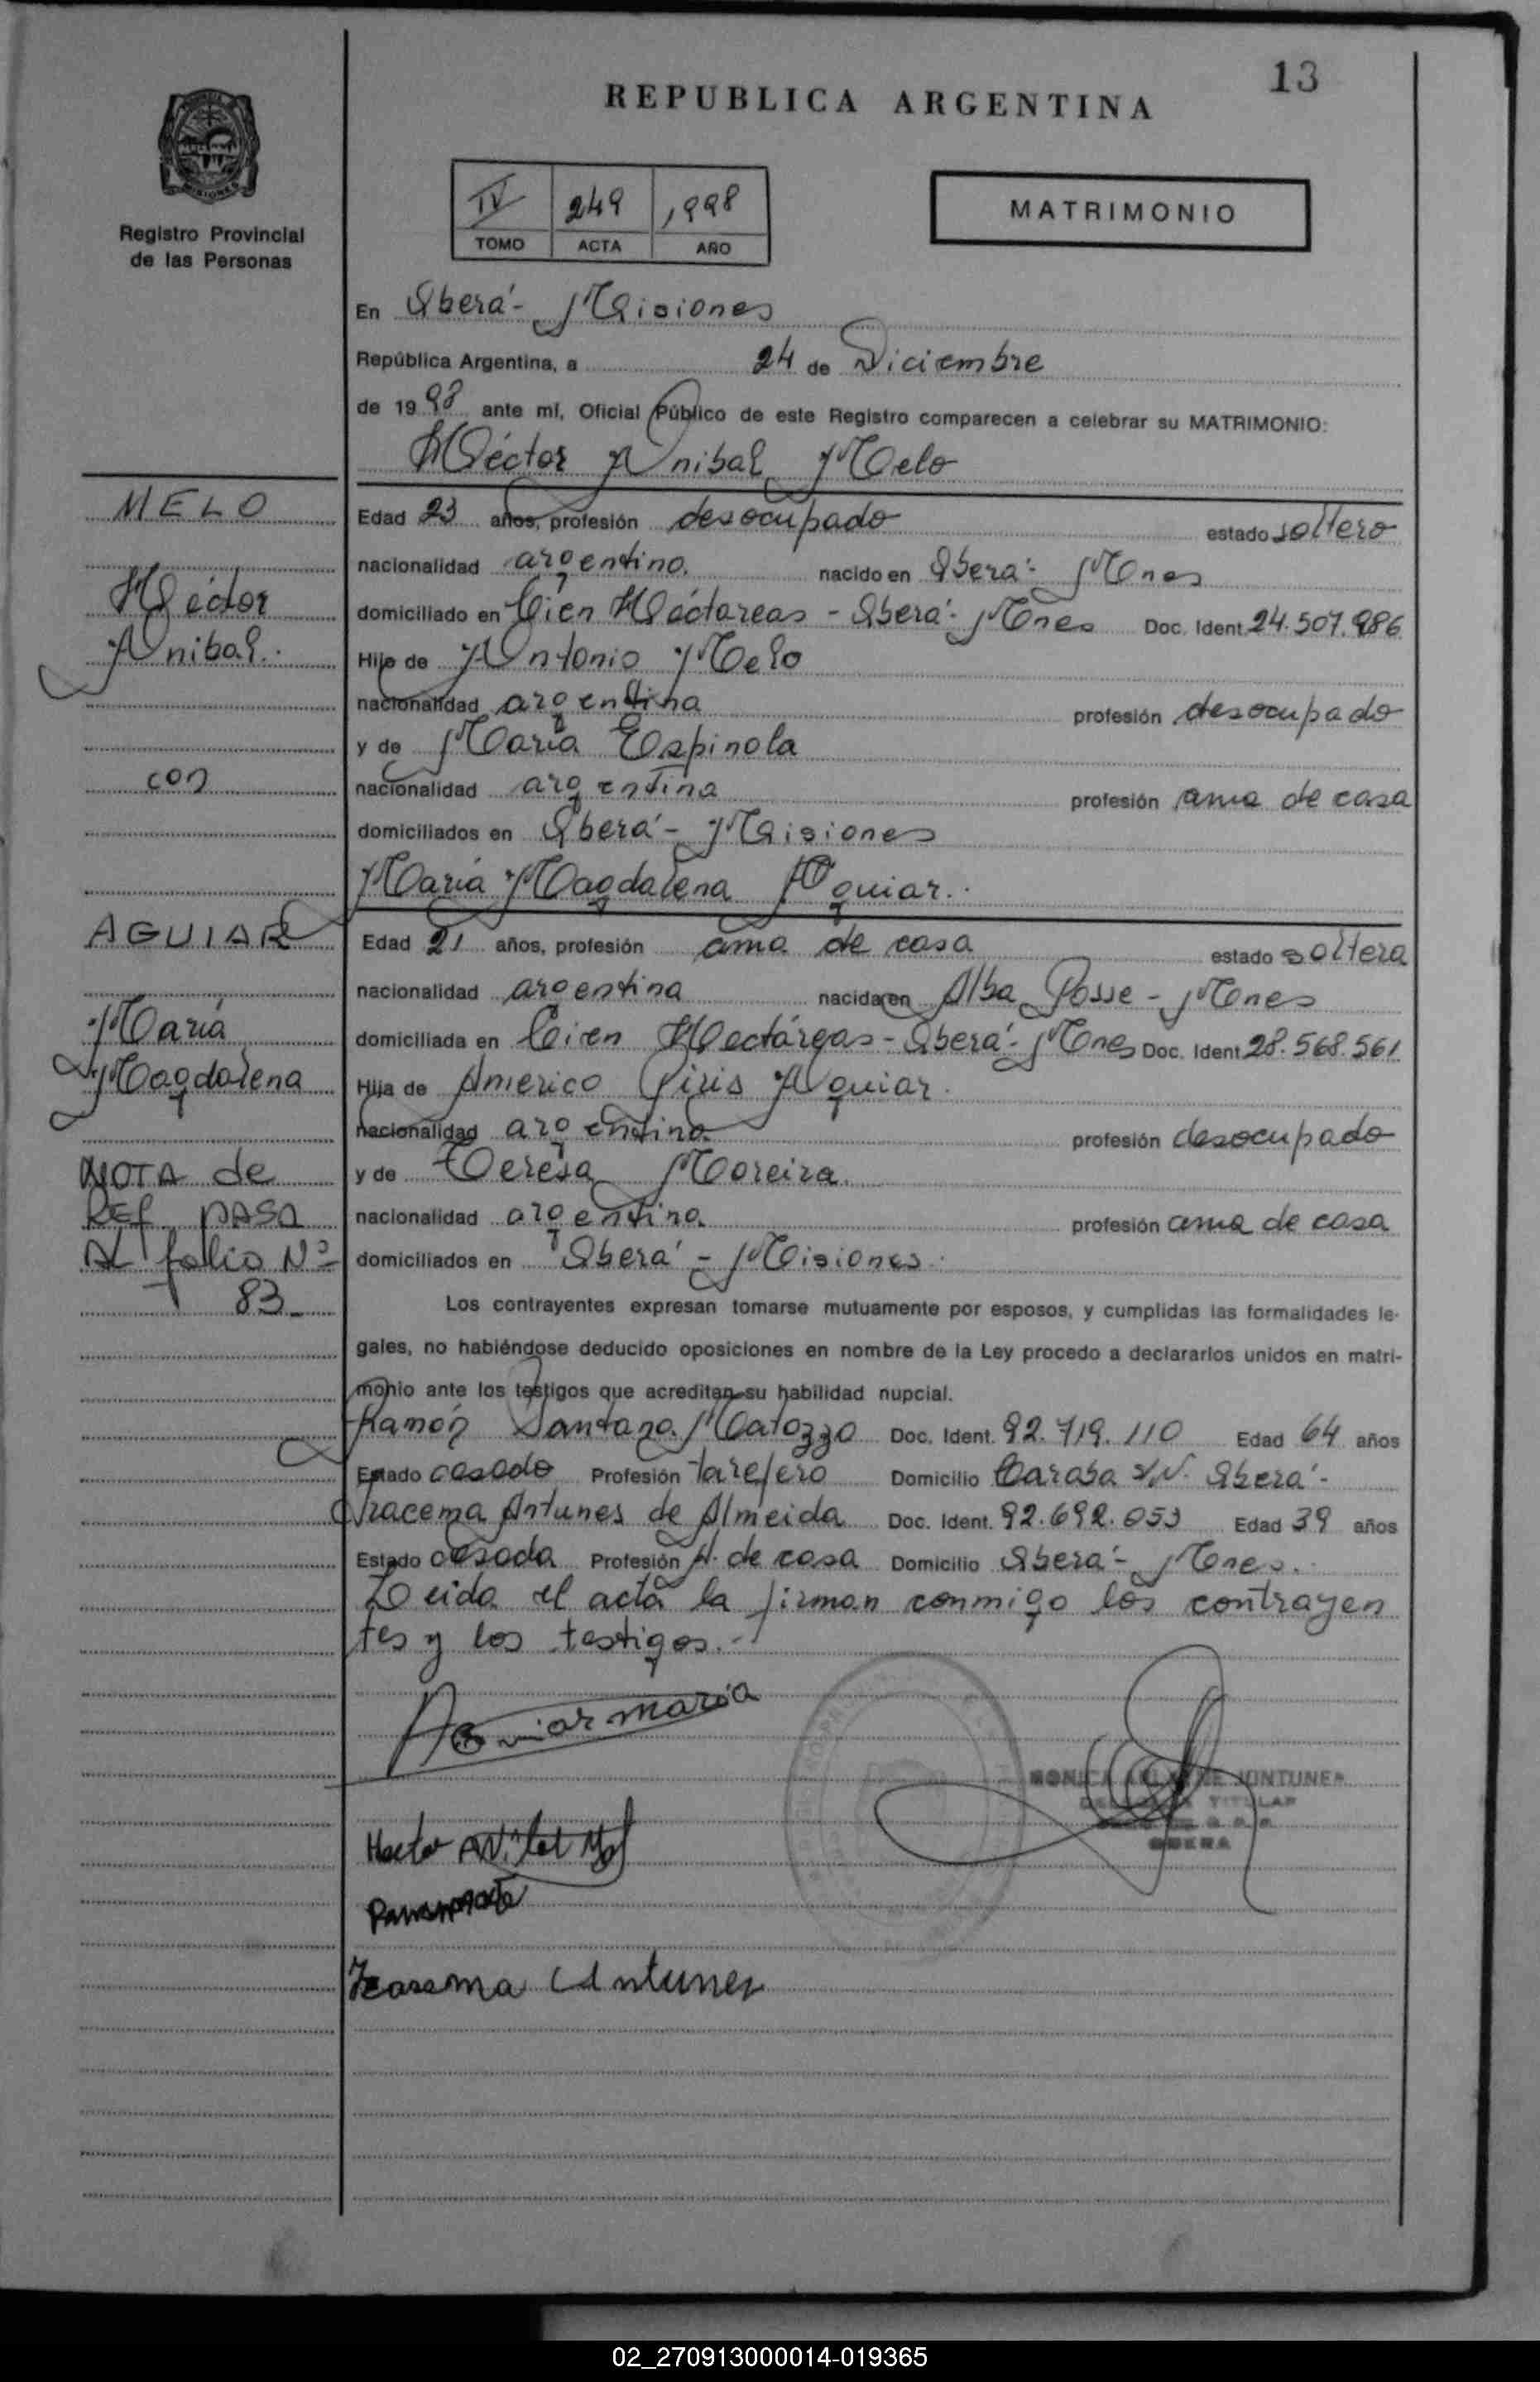 13
REPUBLICA ARGENTINA
Registro Provincial
de las Personas
IV 249 1998
TOMO ACTA AÑO
MATRIMONIO
En Oberá - Misiones
República Argentina, a 24 de Diciembre
de 1998 ante mí, Oficial Público de este Registro comparecen a celebrar su MATRIMONIO:
Héctor Anibal Melo
MELO
Héctor
Anibal.
con
AGUIAR
María
Magdalena
NOTA de
REF PASA
AL folio Nº
83_
Edad 23 años, profesión desocupado estado soltero
nacionalidad argentino. nacido en Oberá - Mnes
domiciliado en Cien Héctareas - Oberá - Mnes Doc. Ident. 24.507.986
Hijo de Antonio Melo
nacionalidad argentina profesión desocupado
y de María Espinola
nacionalidad argentina profesión ama de casa
domiciliados en Oberá - Misiones
María Magdalena Aguiar.
Edad 21 años, profesión ama de casa estado soltera
nacionalidad argentina nacida en Alba Posse - Mnes
domiciliada en Cien Hectáreas - Oberá - Mnes Doc. Ident. 28.568.561
Hija de Americo Piris Aguiar.
nacionalidad argentina profesión desocupado
y de Teresa Moreira.
nacionalidad argentina profesión ama de casa
domiciliados en Oberá - Misiones.
Los contrayentes expresan tomarse mutuamente por esposos, y cumplidas las formalidades le-
gales, no habiéndose deducido oposiciones en nombre de la Ley procedo a declararlos unidos en matri-
monio ante los testigos que acreditan su habilidad nupcial.
Ramón Santana Matozzo Doc. Ident. 92.719.110 Edad 64 años
Estado casado Profesión tarefero Domicilio Caraba S/N. Oberá -
Iracema Antunes de Almeida Doc. Ident. 92.692.053 Edad 39 años
Estado casada Profesión A. de casa Domicilio Oberá - Mnes.
Leida el acta la firman conmigo los contrayen
tes y los testigos.-
Aguiar maria
MONICA
TITULAR
OBERA
Hector Anibal
Antunes
02_270913000014-019365